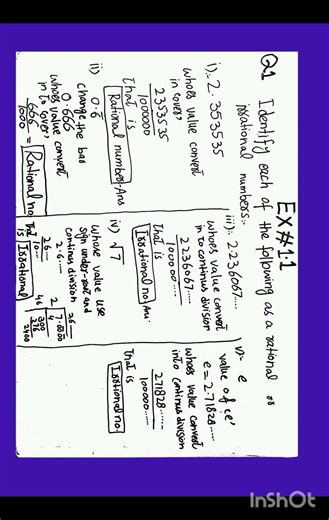 EX#1.1
Q1 Identify each of the following as a rational or
irrational numbers:-
i):- 2.353535
whoes value convert
in to over,
2353535
1000000
That is
Rational number Ans
ii) 0.6̅
change the bar
0.666
whoes value convert
in to over,
666
1000
= Rational no
iii):- 2.236067....
whoes value convert
in to continus division
2236067....
100000.....
That is
Irrational no Ans.
iv) √7
whoes value use
sign under-root and
continus division
2.6....
26...
10...
That is Irrational
26
2 7.0000
4
46 300
276
2400
v) e
value of 'e'
e = 2.71828.....
whoes value convert
into continus division
271828......
100000.....
That is
Irrational no.
InShOt